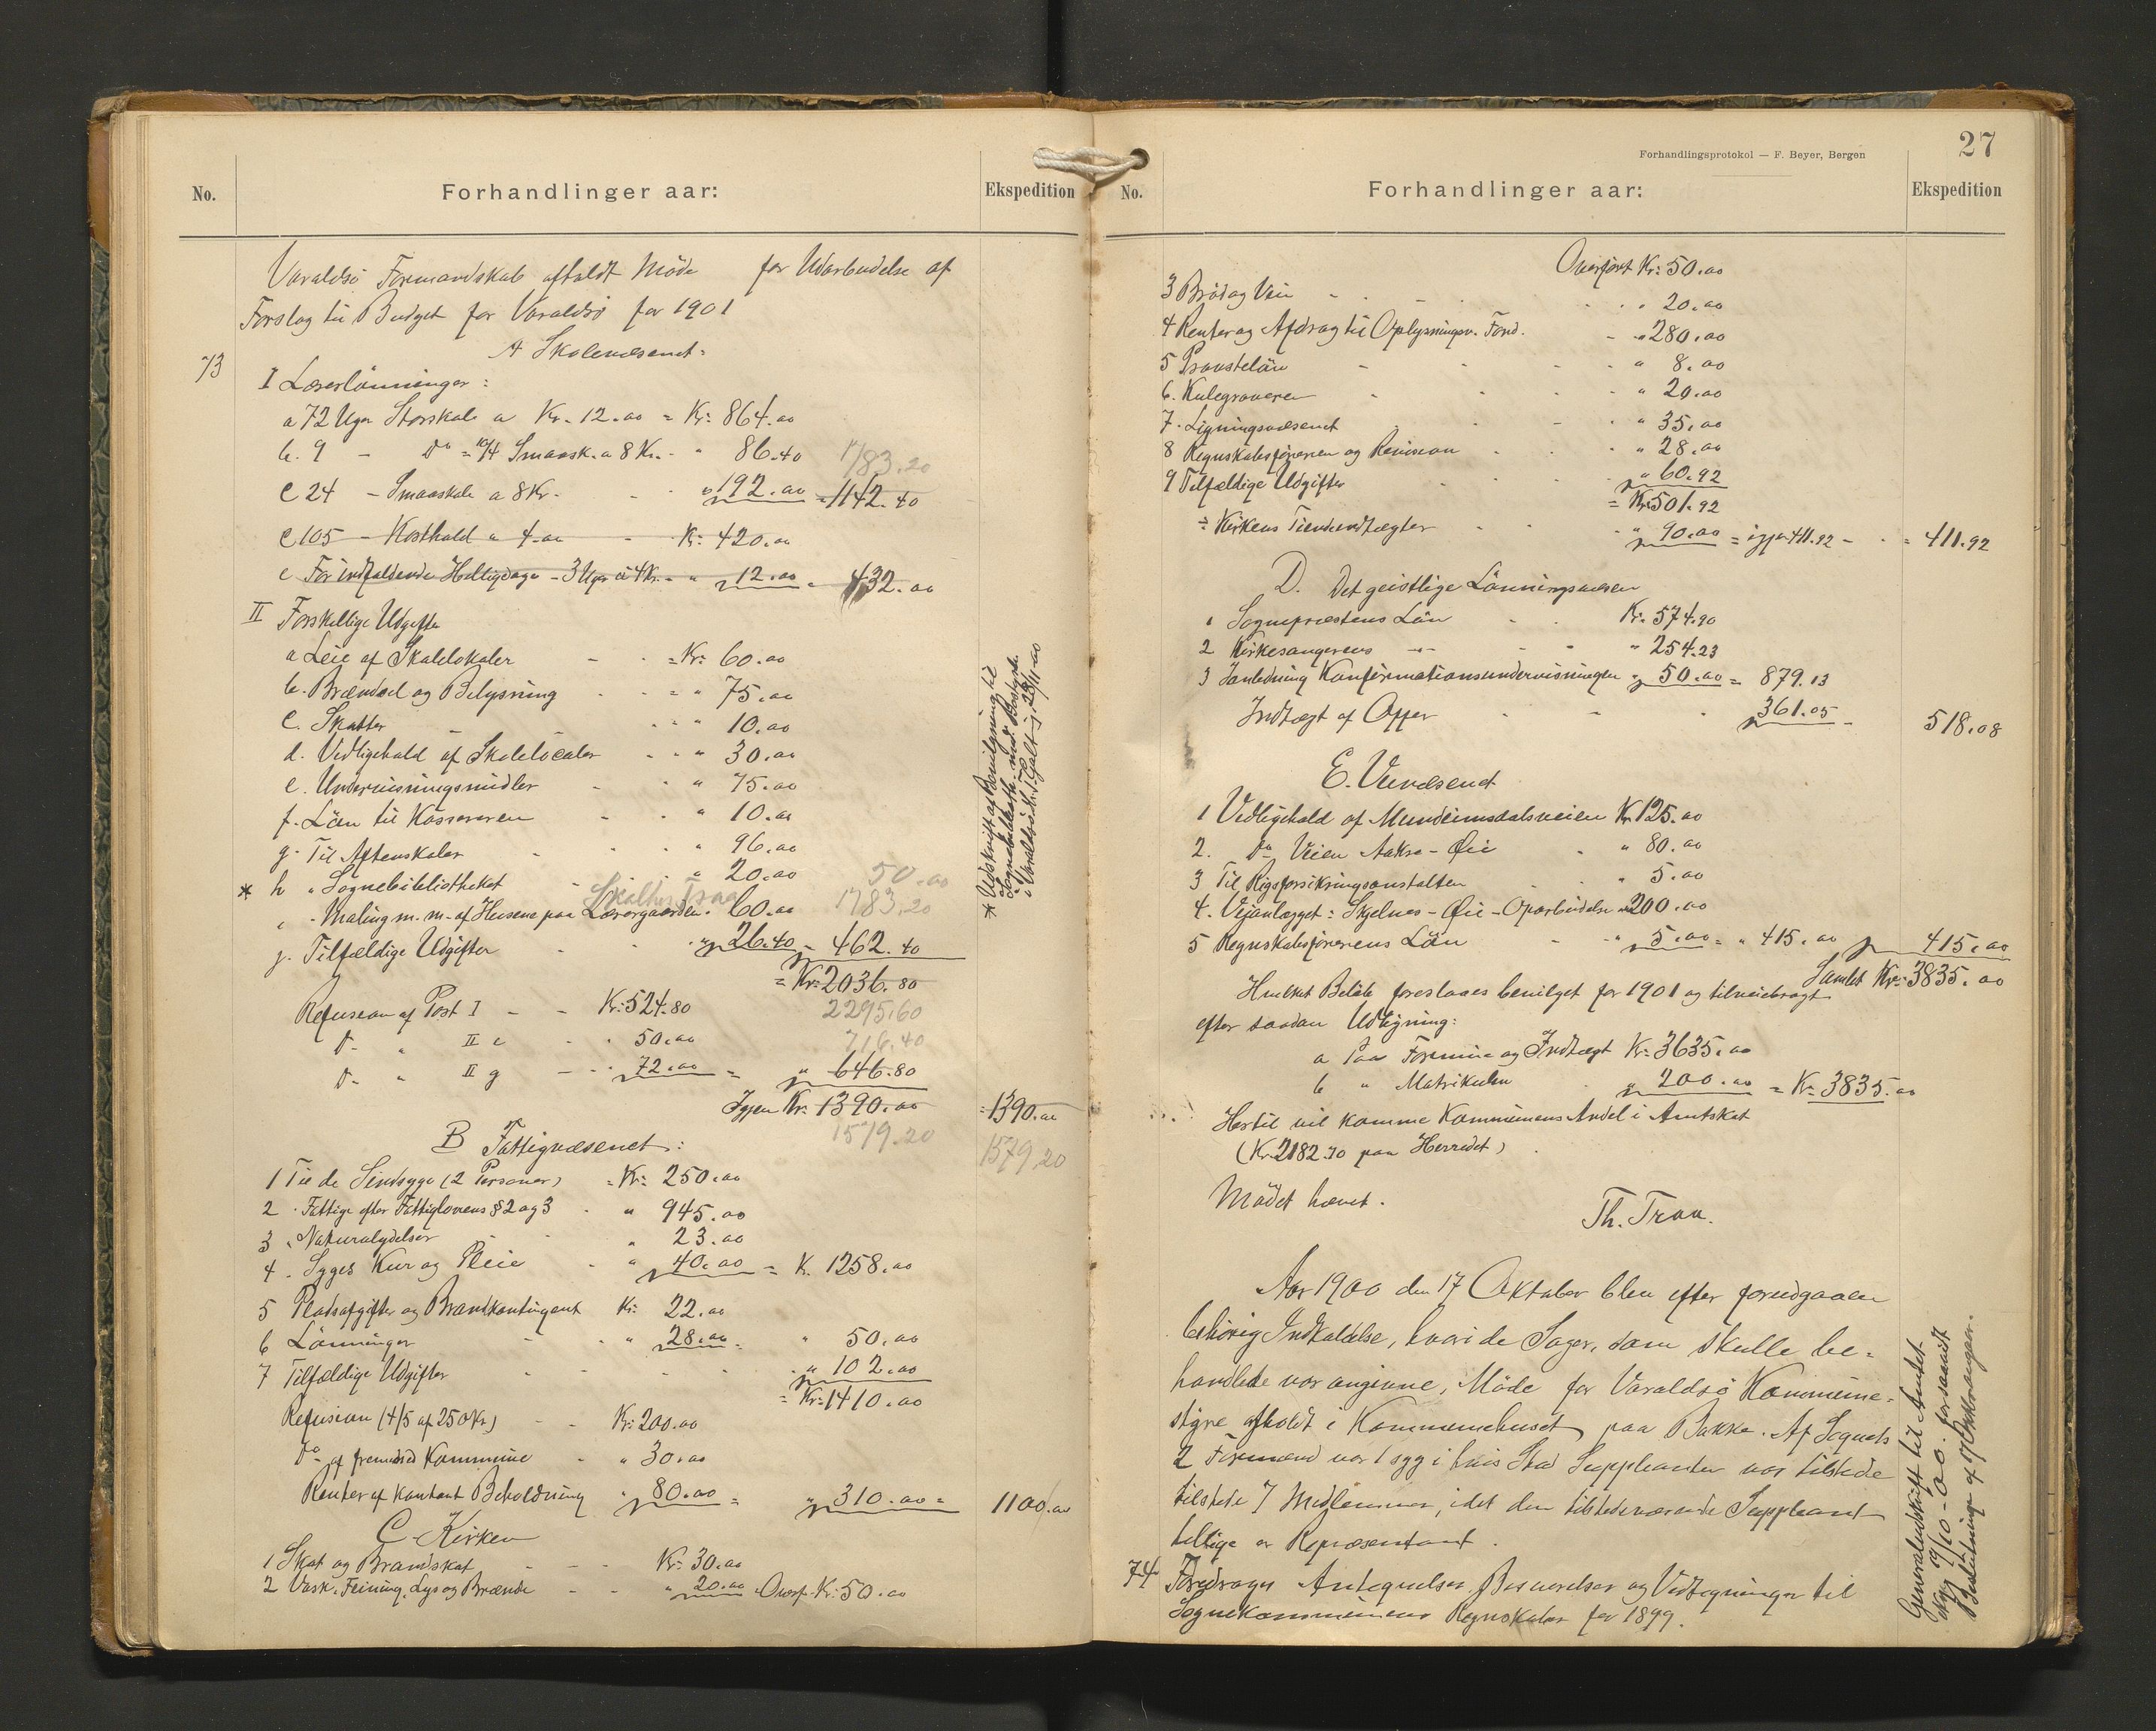 No.
Forhandlinger aar:
Ekspedition
Varaldsö Formandskab afholdt Möde for Udarbeidelse af
Forslag til Budget for Varaldsö for 1901
73
A Skolevæsenet:
I Lærerlönninger:
a 72 Uger Storskole a Kr. 12.00 = Kr: 864.00
b. 9 - Do = Smaask. a 8 Kr. - " 86.40 1783.20
c 24 - Smaaskole a 8 Kr. - " 192.00 = 1142.40
e 105 - Kosthold a 4.00 - Kr: 420.00
e For indfaldende Helligdage - 3 Uger a 4 Kr. - " 12.00 = 432.00
II Forskellige Udgifter
a Leie af Skolelokaler - = Kr: 60.00
b. Brændsel og Belysning = " 75.00
c. Skatter - " 10.00
d. Vedligehold af Skolelocaler - " 30.00
e. Undervisningsmidler " 75.00
f. Lön til Kassereren - " 10.00
g. Til Aftenskoler - " 96.00
* h " Sognebibliotheket " 20.00 50.00
i - Maling m. m. af Husene paa Lærergaarden. 60.00 1783,20
j. Tilfældige Udgifter - " 26.40 = 462.40
= Kr: 2036.80
2295.60
Refusion af Post I - - Kr: 524.80
716.40
Do " II e - " 50.00
Do " II g - - 72.00 = " 646.80
Igjen Kr: 1390.00 = 1390.00
1579.20 1579,20
* Udskrift og Bevilgning til
Sognebibliothe
B Fattigvæsenet:
1 Til de Sindsyge (2 Personer) = Kr: 250.00
2 - Fattige efter Fattiglovens § 2 og 3 - " 945.00
3 " Naturalydelser - " 23.00
4 - Syges Kur og Pleie - " 40.00 = K. 1258.00
5 Pladsafgifter og Brandkontingent Kr: 22.00
6 Lönninger - " 28.00 = " 50.00
7 Tilfældige Udgifter - " 102.00
= Kr: 1410.00
Refusion (4/5 af 250 Kr) - - Kr: 200.00
Do af fremmed Kommune - " 30.00
Renter af kontant Beholdning " 80.00 = " 310.00 = 1100.00
C Kirken
1 Skat og Brandskat - - - Kr: 30.00
2 Vask, Feining, Lys og Brænde - - " 20.00 Overf. Kr: 50.00
27
Forhandlingsprotokol — F. Beyer, Bergen
No.
Forhandlinger aar:
Ekspedition
Overfört Kr: 50.00
3 Bröd og Vin - - " 20.00
4 Renter og Afdrag til Oplysningsv. Fond. - " 280.00
5 Provstelön - - " 8.00
6. Kulegraveren - - " 20.00
7. Ligningsvæsenet - " 35.00
8 Regnskabsföreren og Revision - " 28.00
9 Tilfældige Udgifter - " 60.92
= Kr: 501.92
÷ Kirkens Tiendeindtægter - " 90.00 = igjen 411.92 - = 411.92
D. Det geistlige Lönningsvæsen
1 Sognepræstens Lön - Kr: 574.90
2 Kirkesangerens - " - " 254.23
3 I anledning Konfirmationsundervisningen " 50.00 = 879.13
Indtægt af Offer - - 361.05 - 518.08
E. Veivæsenet
1 Vedligehold af Mundeimsdalsveien Kr. 125.00
2. Do Veien Aakre - Öie - " 80.00
3 Til Rigsforsikringsanstalten " 5.00
4. Vejanlægget: Skjelnes - Öie - Oparbeidelse " 200.00
5 Regnskabsförerens Lön - " 5.00 = " 415.00 415.00
Samlet Kr: 3835.00
Hvilket Belöb foreslaaes bevilget for 1901 og tilveiebragt
efter saadan Udligning:
a Paa Formue og Indtægt Kr: 3635.00
b " Matrikulen " 200.00 = Kr: 3835.00
Hertil vil komme Kommunens Andel i Amtskat
(Kr. 2182.70 paa Herredet)
Mödet hævet.
Th. Traa.
Aar 1900 den 17 Oktober blev efter foregaaen
behörig Indkaldelse, hvori de Sager, som skulle be=
handlede var angivne, Möde for Varaldsö Kommune=
styre afholdt i Kommunehuset paa Bakke. Af Sognets
2 Formænd var 1 syg i hvis Sted Suppleanten var tilstede
tilstede 7 Medlemmer, idet den tilstedeværende Suppleant
tillige er Repræsentant.
74 Foredroges Antegnelser, Besvarelser og Vedtegninger til
Sognekommunens Regnskaber for 1899.
Generaludskrift til Amtet
19/10-00. forsaavidt
Beslutninger